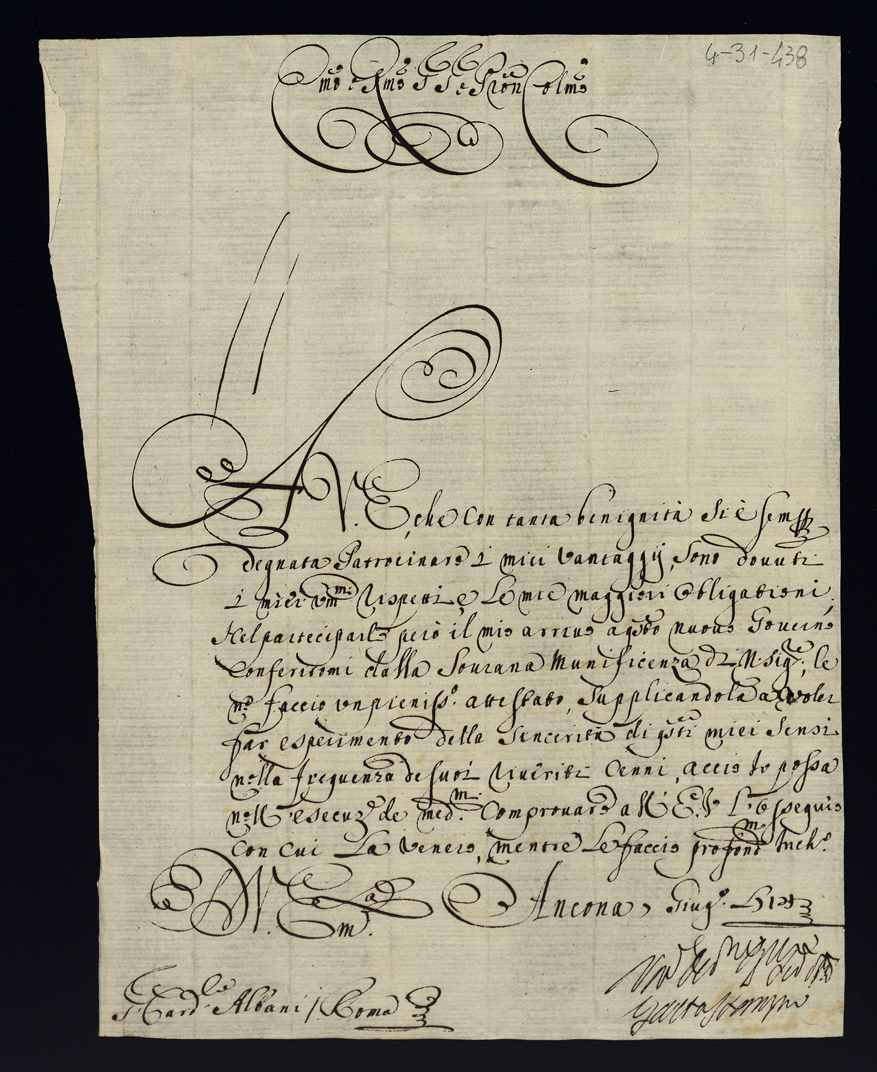 4-31-438
Emo e Rmo Sig Sig e Pron Colmo
A V. E, che con tanta benignità si è semp
degnata Patrocinare i miei vantaggij, sono douuti
i miei vmmi rispetti, e le mie maggiori obligationi,
Nel parteciparle però il mio arriuo a qsto nuouo Gouerno
Conferitomi dalla Sourana Munificenza di N. Sigre, le
ne faccio vn pienisso. attestato, supplicandola a voler
far esperimento della sincerità di qsti miei sensi
nella frequenza de suoi riueriti Cenni, acciò io possa
nell' esecuze de medmi. Comprouare all' E. V. l'osseguio
con cui la venero, mentre le faccio profondma Inchо.
D. V. Ema. Ancona, Giugo.
S. Cardle Albani / Roma